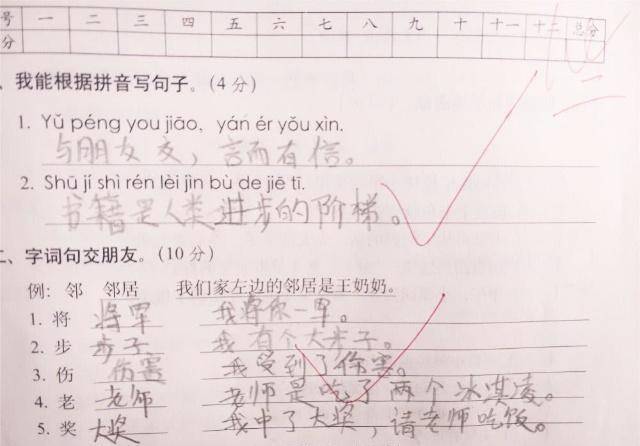 号 一 二 三 四 五 六 七 八 九 十 十一 十二 总分
分
、我能根据拼音写句子。(4分)
1. Yǔ péng you jiāo, yán ér yǒu xìn.
与朋友交，言而有信。
2. Shū jí shì rén lèi jìn bù de jiē tī.
书籍是人类进步的阶梯。
二、字词句交朋友。(10分)
例：邻 邻居 我们家左边的邻居是王奶奶。
1. 将 将军 我将你一军。
2. 步 步子 我有个大步子。
3. 伤 伤害 我受到了伤害。
4. 老 老师 老师是吃了两个冰淇凌。
5. 奖 大奖 我中了大奖，请老师吃饭。